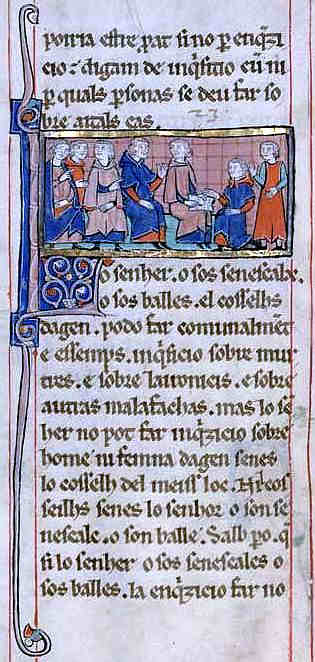 poiria estre prat si no p enq̃zi
cio: digam de inq̃sitio eu ni
p quals psonas se deu far so
bre aitals cas
23
Lo senher. o sos senescalx.
o sos balles. el cosselhs
dagen. podo far comunalmẽt
e essemps. inq̃sicio sobre mur
tres. e sobre laironicis. e sobre
autras malafachas. mas lo se
her no pot far inq̃zicio sobre
home ni femna dagen senes
lo cosselh del meiss loc. Ni cos
seilhs senes lo senhor o son se
nescale. o son balle. Salb po. q̃
si lo senher o sos senescales o
sos balles. la enq̃zicio far no